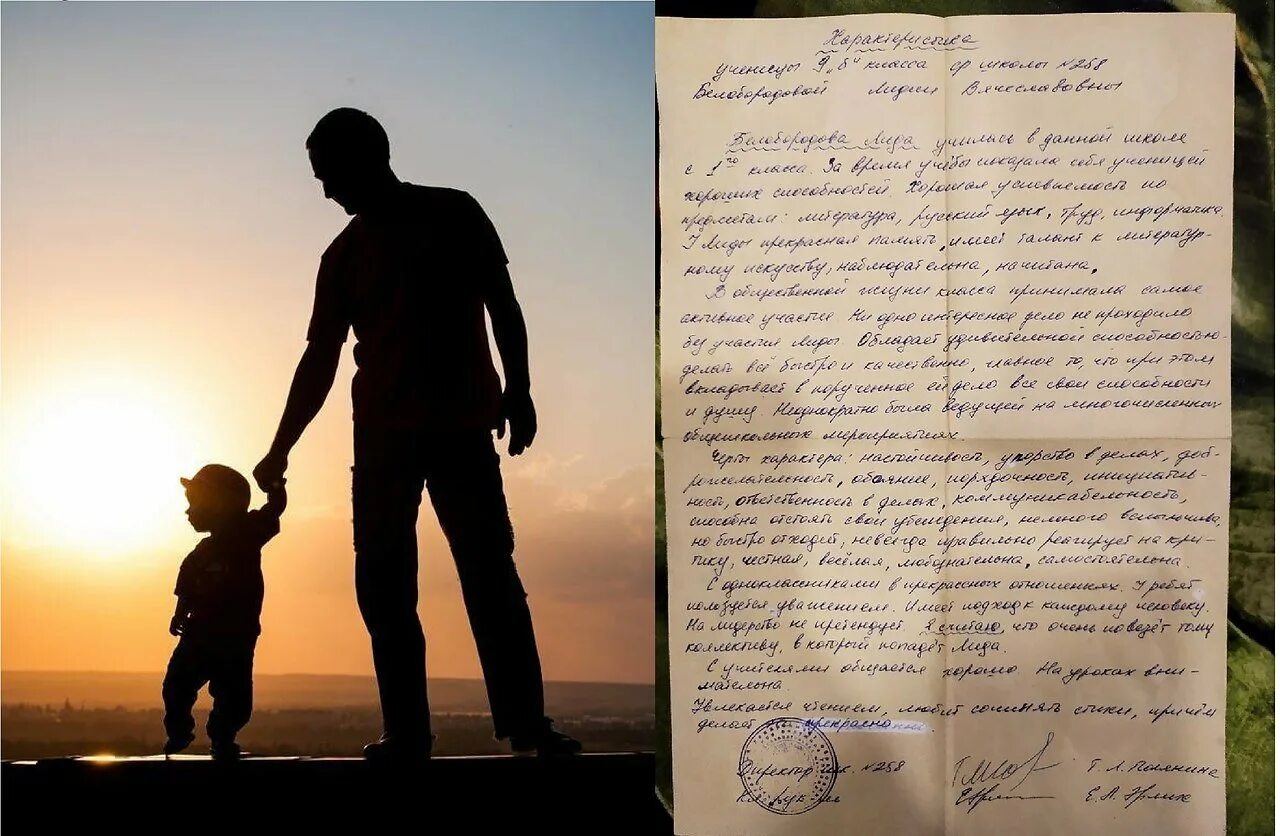 Характеристика
ученицы 9 „б“ класса ср школы №258
Белобородовой Лидии Вячеславовны
Белобородова Лида училась в данной школе
с 1го класса. За время учёбы показала себя ученицей
хороших способностей. Хорошая успеваемость по
предметам: литература, русский язык, труд, информатика.
У Лиды прекрасная память, имеет талант к литератур-
ному искусству, наблюдательна, начитана.
В общественной жизни класса принимала самое
активное участие. Ни одно интересное дело не проходило
без участия Лиды. Обладает удивительной способностью
делать всё быстро и качественно, главное то, что при этом
вкладывает в порученное ей дело все свои способности
и душу. Неоднократно была ведущей на многочисленных
общешкольных мероприятиях.
Черты характера: настойчивость, упорство в делах, доб-
рожелательность, обаяние, порядочность, инициатив-
ность, ответственность в делах, коммуникабельность,
способна отстоять свои убеждения, немного вспыльчива,
но быстро отходит, не всегда правильно реагирует на кри-
тику, честная, весёлая, любознательна, самостоятельна.
С одноклассниками в прекрасных отношениях. У ребят
пользуется уважением. Имеет подход к каждому человеку.
На лидерство не претендует. Я считаю, что очень повезёт тому
коллективу, в который попадёт Лида.
С учителями общается хорошо. На уроках вни-
мательна.
Увлекается чтением, любит сочинять стихи, причём
делает прекрасно
Директор шк. №258 Т. Л.
Кл. рук-ль Е. А. Эрлих